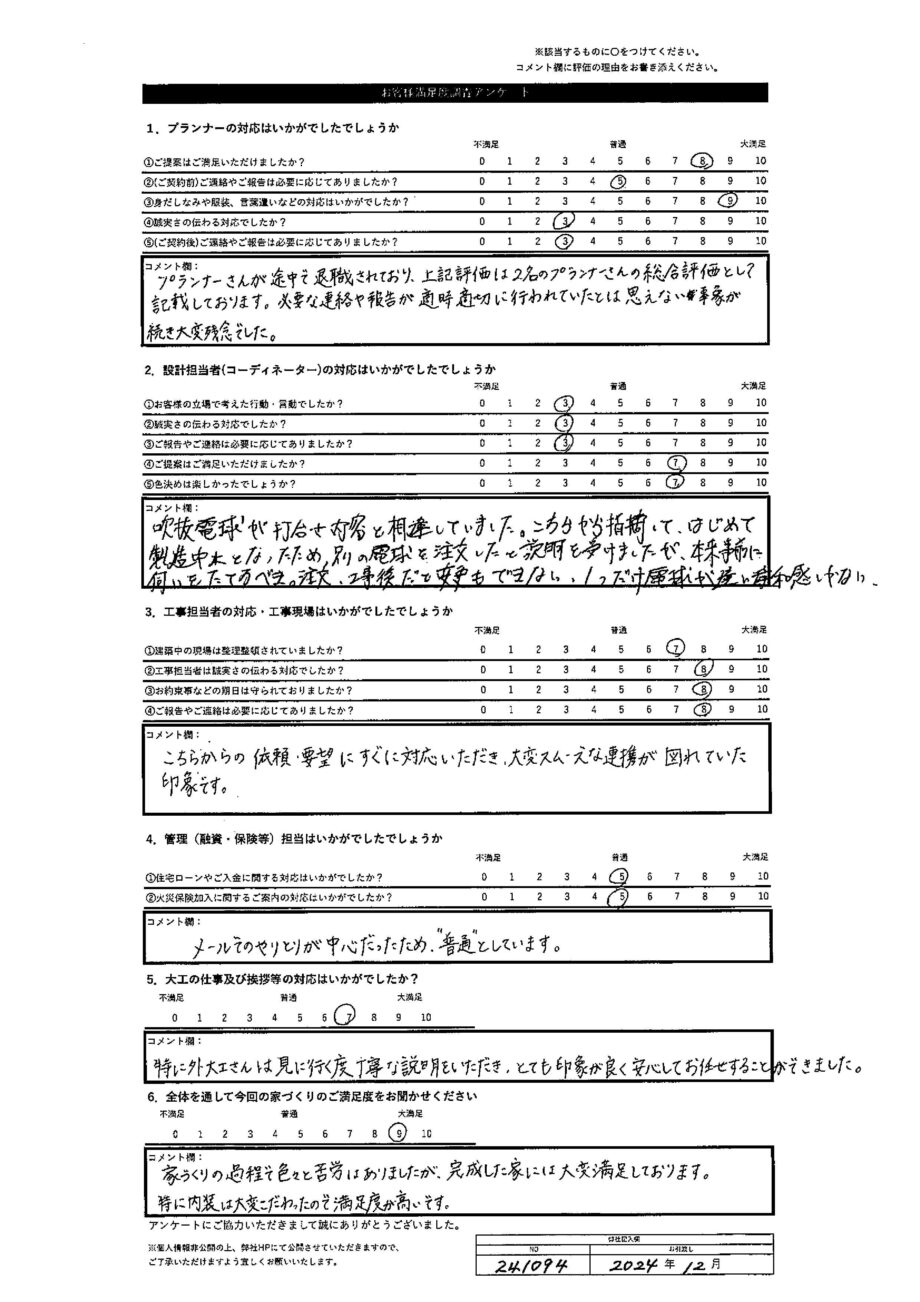 ※該当するものに〇をつけてください。
コメント欄に評価の理由をお書き添えください。
お客様満足度調査アンケート
1．プランナーの対応はいかがでしたでしょうか
不満足 普通 大満足
①ご提案はご満足いただけましたか？ 0 1 2 3 4 5 6 7 8 9 10
②(ご契約前)ご連絡やご報告は必要に応じてありましたか？ 0 1 2 3 4 5 6 7 8 9 10
③身だしなみや服装、言葉遣いなどの対応はいかがでしたか？ 0 1 2 3 4 5 6 7 8 9 10
④誠実さの伝わる対応でしたか？ 0 1 2 3 4 5 6 7 8 9 10
⑤(ご契約後)ご連絡やご報告は必要に応じてありましたか？ 0 1 2 3 4 5 6 7 8 9 10
コメント欄：
プランナーさんが途中で退職されており、上記評価は2名のプランナーさんの総合評価として
記載しております。必要な連絡や報告が適時適切に行われていたとは思えない事象が
続き大変残念でした。
2．設計担当者(コーディネーター)の対応はいかがでしたでしょうか
不満足 普通 大満足
①お客様の立場で考えた行動・言動でしたか？ 0 1 2 3 4 5 6 7 8 9 10
②誠実さの伝わる対応でしたか？ 0 1 2 3 4 5 6 7 8 9 10
③ご報告やご連絡は必要に応じてありましたか？ 0 1 2 3 4 5 6 7 8 9 10
④ご提案はご満足いただけましたか？ 0 1 2 3 4 5 6 7 8 9 10
⑤色決めは楽しかったでしょうか？ 0 1 2 3 4 5 6 7 8 9 10
コメント欄：
吹抜電球が打合せ内容と相違していました。こちらが指摘して、はじめて
製造中止となったため、別の電球を注文したと説明を受けましたが、本来事前に
伺いをたてるべき。注文、工事後だと変更もできない、1つだけ電球が違い違和感しかない、
3．工事担当者の対応・工事現場はいかがでしたでしょうか
不満足 普通 大満足
①建築中の現場は整理整頓されていましたか？ 0 1 2 3 4 5 6 7 8 9 10
②工事担当者は誠実さの伝わる対応でしたか？ 0 1 2 3 4 5 6 7 8 9 10
③お約束事などの期日は守られておりましたか？ 0 1 2 3 4 5 6 7 8 9 10
④ご報告やご連絡は必要に応じてありましたか？ 0 1 2 3 4 5 6 7 8 9 10
コメント欄：
こちらからの依頼・要望にすぐに対応いただき、大変スムーズな連携が図れていた
印象です。
4．管理（融資・保険等）担当はいかがでしたでしょうか
不満足 普通 大満足
①住宅ローンやご入金に関する対応はいかがでしたか？ 0 1 2 3 4 5 6 7 8 9 10
②火災保険加入に関するご案内の対応はいかがでしたか？ 0 1 2 3 4 5 6 7 8 9 10
コメント欄：
メールでのやりとりが中心だったため、"普通"としています。
5．大工の仕事及び挨拶等の対応はいかがでしたか？
不満足 普通 大満足
0 1 2 3 4 5 6 7 8 9 10
コメント欄：
特に外大工さんは見に行く度丁寧な説明をいただき、とても印象が良く安心してお任せすることができました。
6．全体を通して今回の家づくりのご満足度をお聞かせください
不満足 普通 大満足
0 1 2 3 4 5 6 7 8 9 10
コメント欄：
家づくりの過程で色々と苦労はありましたが、完成した家には大変満足しております。
特に内装は大変こだわったので満足度が高いです。
アンケートにご協力いただきまして誠にありがとうございました。
※個人情報非公開の上、弊社HPにて公開させていただきますので、
ご了承いただけますよう宜しくお願いいたします。
弊社記入欄
NO お引渡し
241094 2024年12月